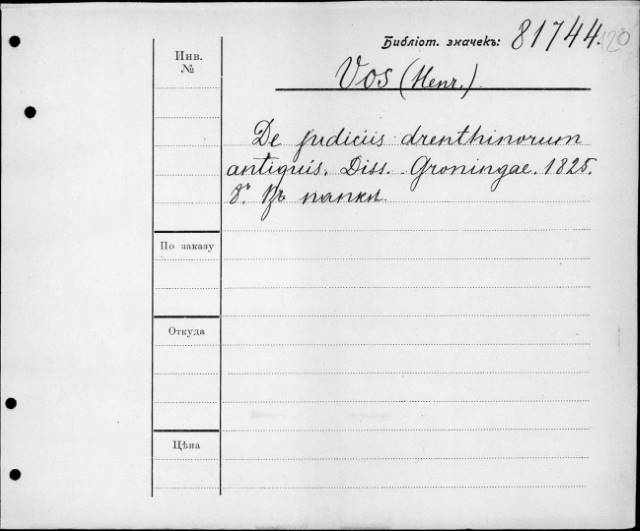 Библіот. значекъ: 81744. 120
Инв.
№
Vos (Henr.)
De judiciis drenthinorum
antiquis. Diss. Groningae. 1825.
8°. Въ папкѣ
По заказу
Откуда
Цѣна